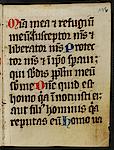 Mia mea et refugiu
meu susceptor m̄s et
liberator m̄s Protec
tor m̄s et in ipo speraui
qui subdis pplm̄ meū
sub me Dn̄e quid est
homo qa innotuisti ei
aut filius hominis qa
reputas eum homo ua